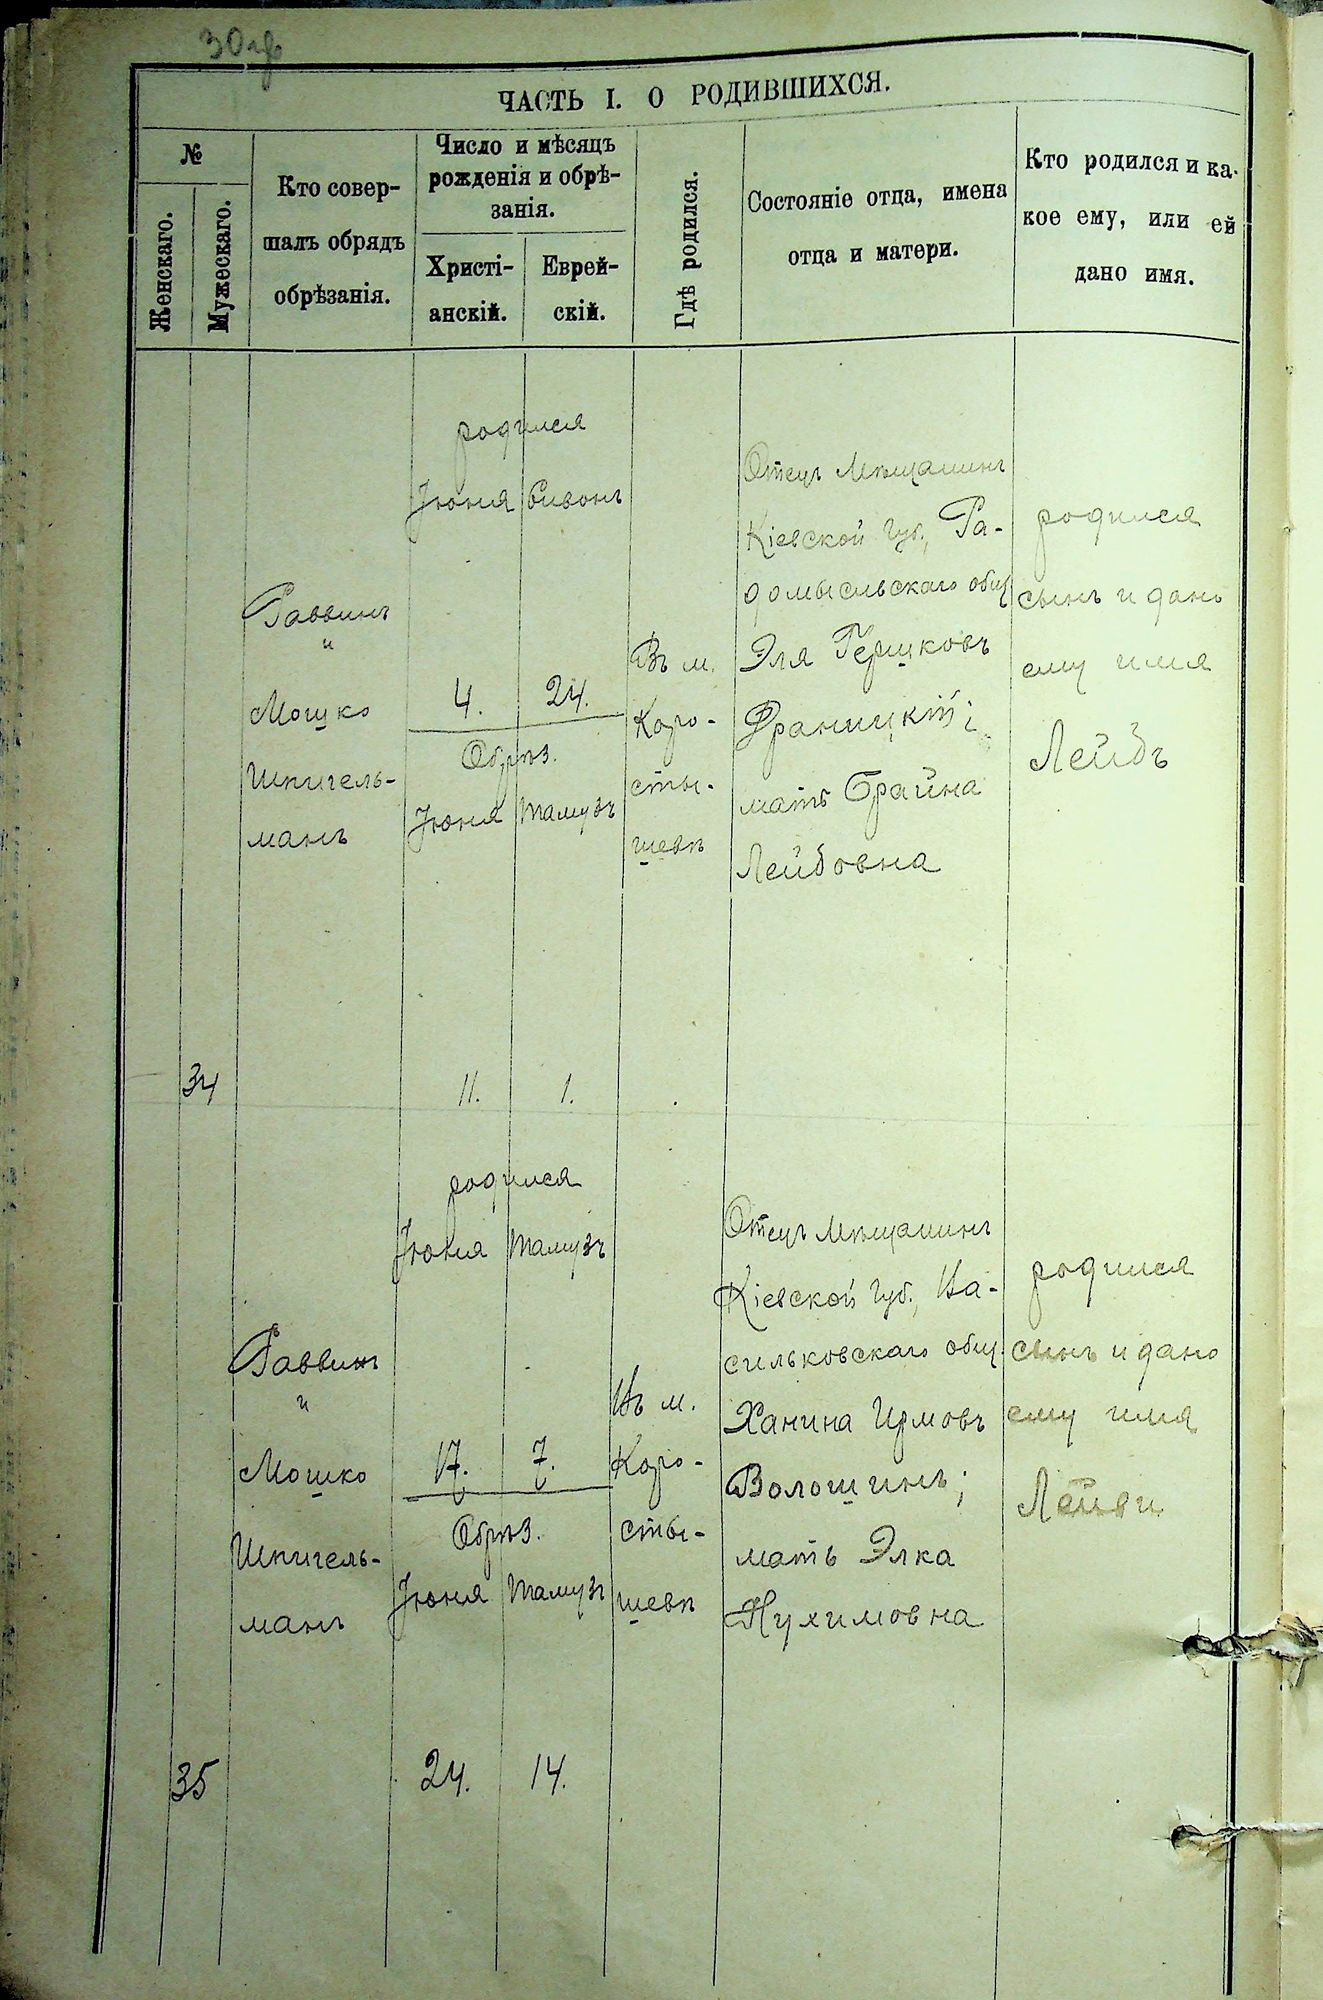 30 об
ЧАСТЬ I. О РОДИВШИХСЯ.
№
Женскаго.
Мужескаго.
Кто совер-
шалъ обрядъ
обрѣзанія.
Число и мѣсяцъ
рожденія и обрѣ-
занія.
Христі-
анскій.
Еврей-
скій.
Гдѣ родился.
Состояніе отца, имена
отца и матери.
Кто родился и ка-
кое ему, или ей
дано имя.
34
Раввинъ
и
Мошко
Шпигель-
манъ
родился
Іюня Сивонъ
4. 24.
Обрѣз.
Іюня Тамузъ
11. 1.
Въ м.
Коро-
сты-
шевѣ
Отецъ Мѣщанинъ
Кіевской Губ., Ра-
домысльскаго общ.
Эля Гершковъ
Драницкій;
мать Брайна
Лейбовна
родился
сынъ и дано
ему имя
Лейбъ
35
Раввинъ
и
Мошко
Шпигель-
манъ
родился
Іюня Тамузъ
17. 7.
Обрѣз.
Іюня Тамузъ
24. 14.
Въ м.
Коро-
сты-
шевѣ
Отецъ Мѣщанинъ
Кіевской Губ., Ва-
сильковскаго общ.
Ханина Ирмовъ
Волошинъ;
мать Элка
Нухимовна
родился
сынъ и дано
ему имя